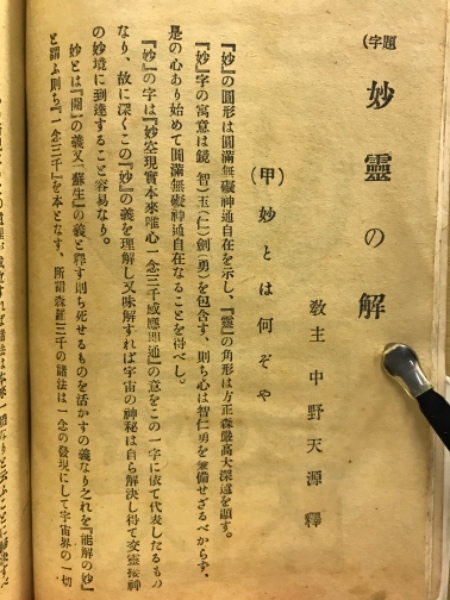 (題字)
妙靈の解
教主 中野天源 釋
(甲)妙とは何ぞや
『妙』の圓形は圓滿無礙神通自在を示し、『靈』の角形は方正森嚴高大深遠を顯す。
『妙』字の寓意は鏡(智)玉(仁)劍(勇)を包含す、則ち心は智仁勇を兼備せざるべからず、
是の心あり始めて圓滿無礙神通自在なることを得べし。
『妙』の字は『妙空現實本來唯心一念三千感應即通』の意をこの一字に依て代表したるもの
なり、故に深くこの『妙』の義を理解し又味解すれば宇宙の神秘は自ら解決し得て交靈接神
の妙境に到達すること容易なり。
妙とは『開』の義又『蘇生』の義と釋す則ち死せるものを活かすの義なり之れを『能解の妙』
と謂ふ則ち『一念三千』を本となす、所謂森羅三千の諸法は一念の發現にして宇宙界の一切